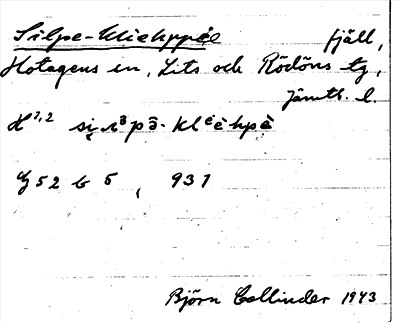 Silpe-kliehppée fjäll,
Hotagens sn, Lits och Rödöns tg,
Jämtl. l.
H 1,2
G 52 b 5, 931
Björn Collinder 1943